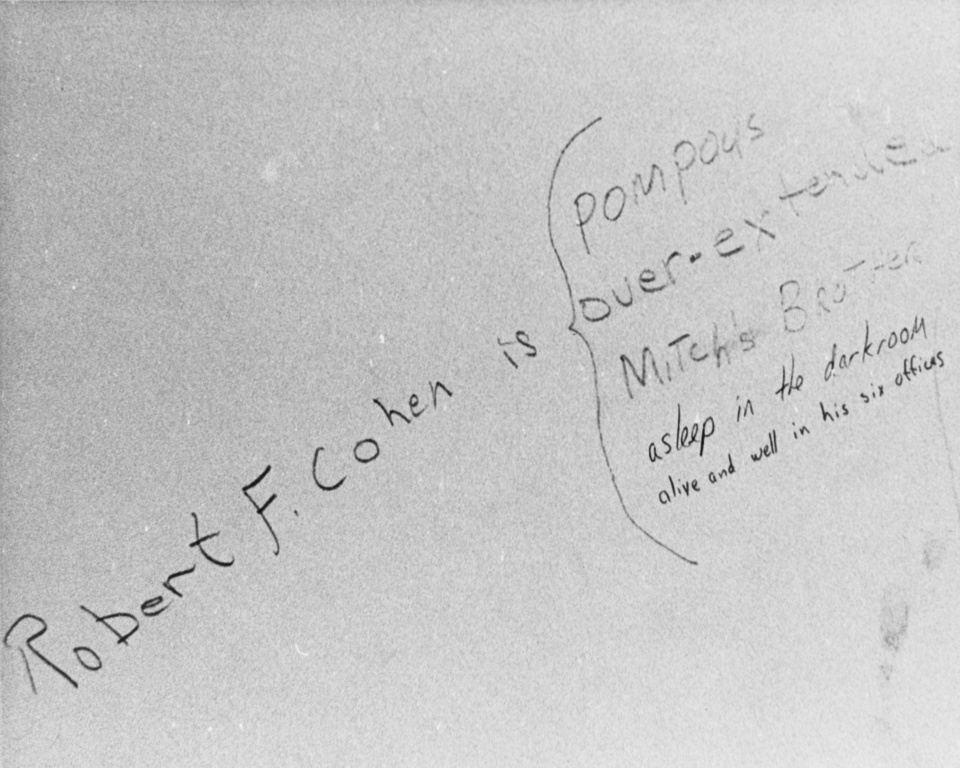 Robert F. Cohen is {
pompous
over-extended
Mitch's Brother
asleep in the darkroom
alive and well in his six offices